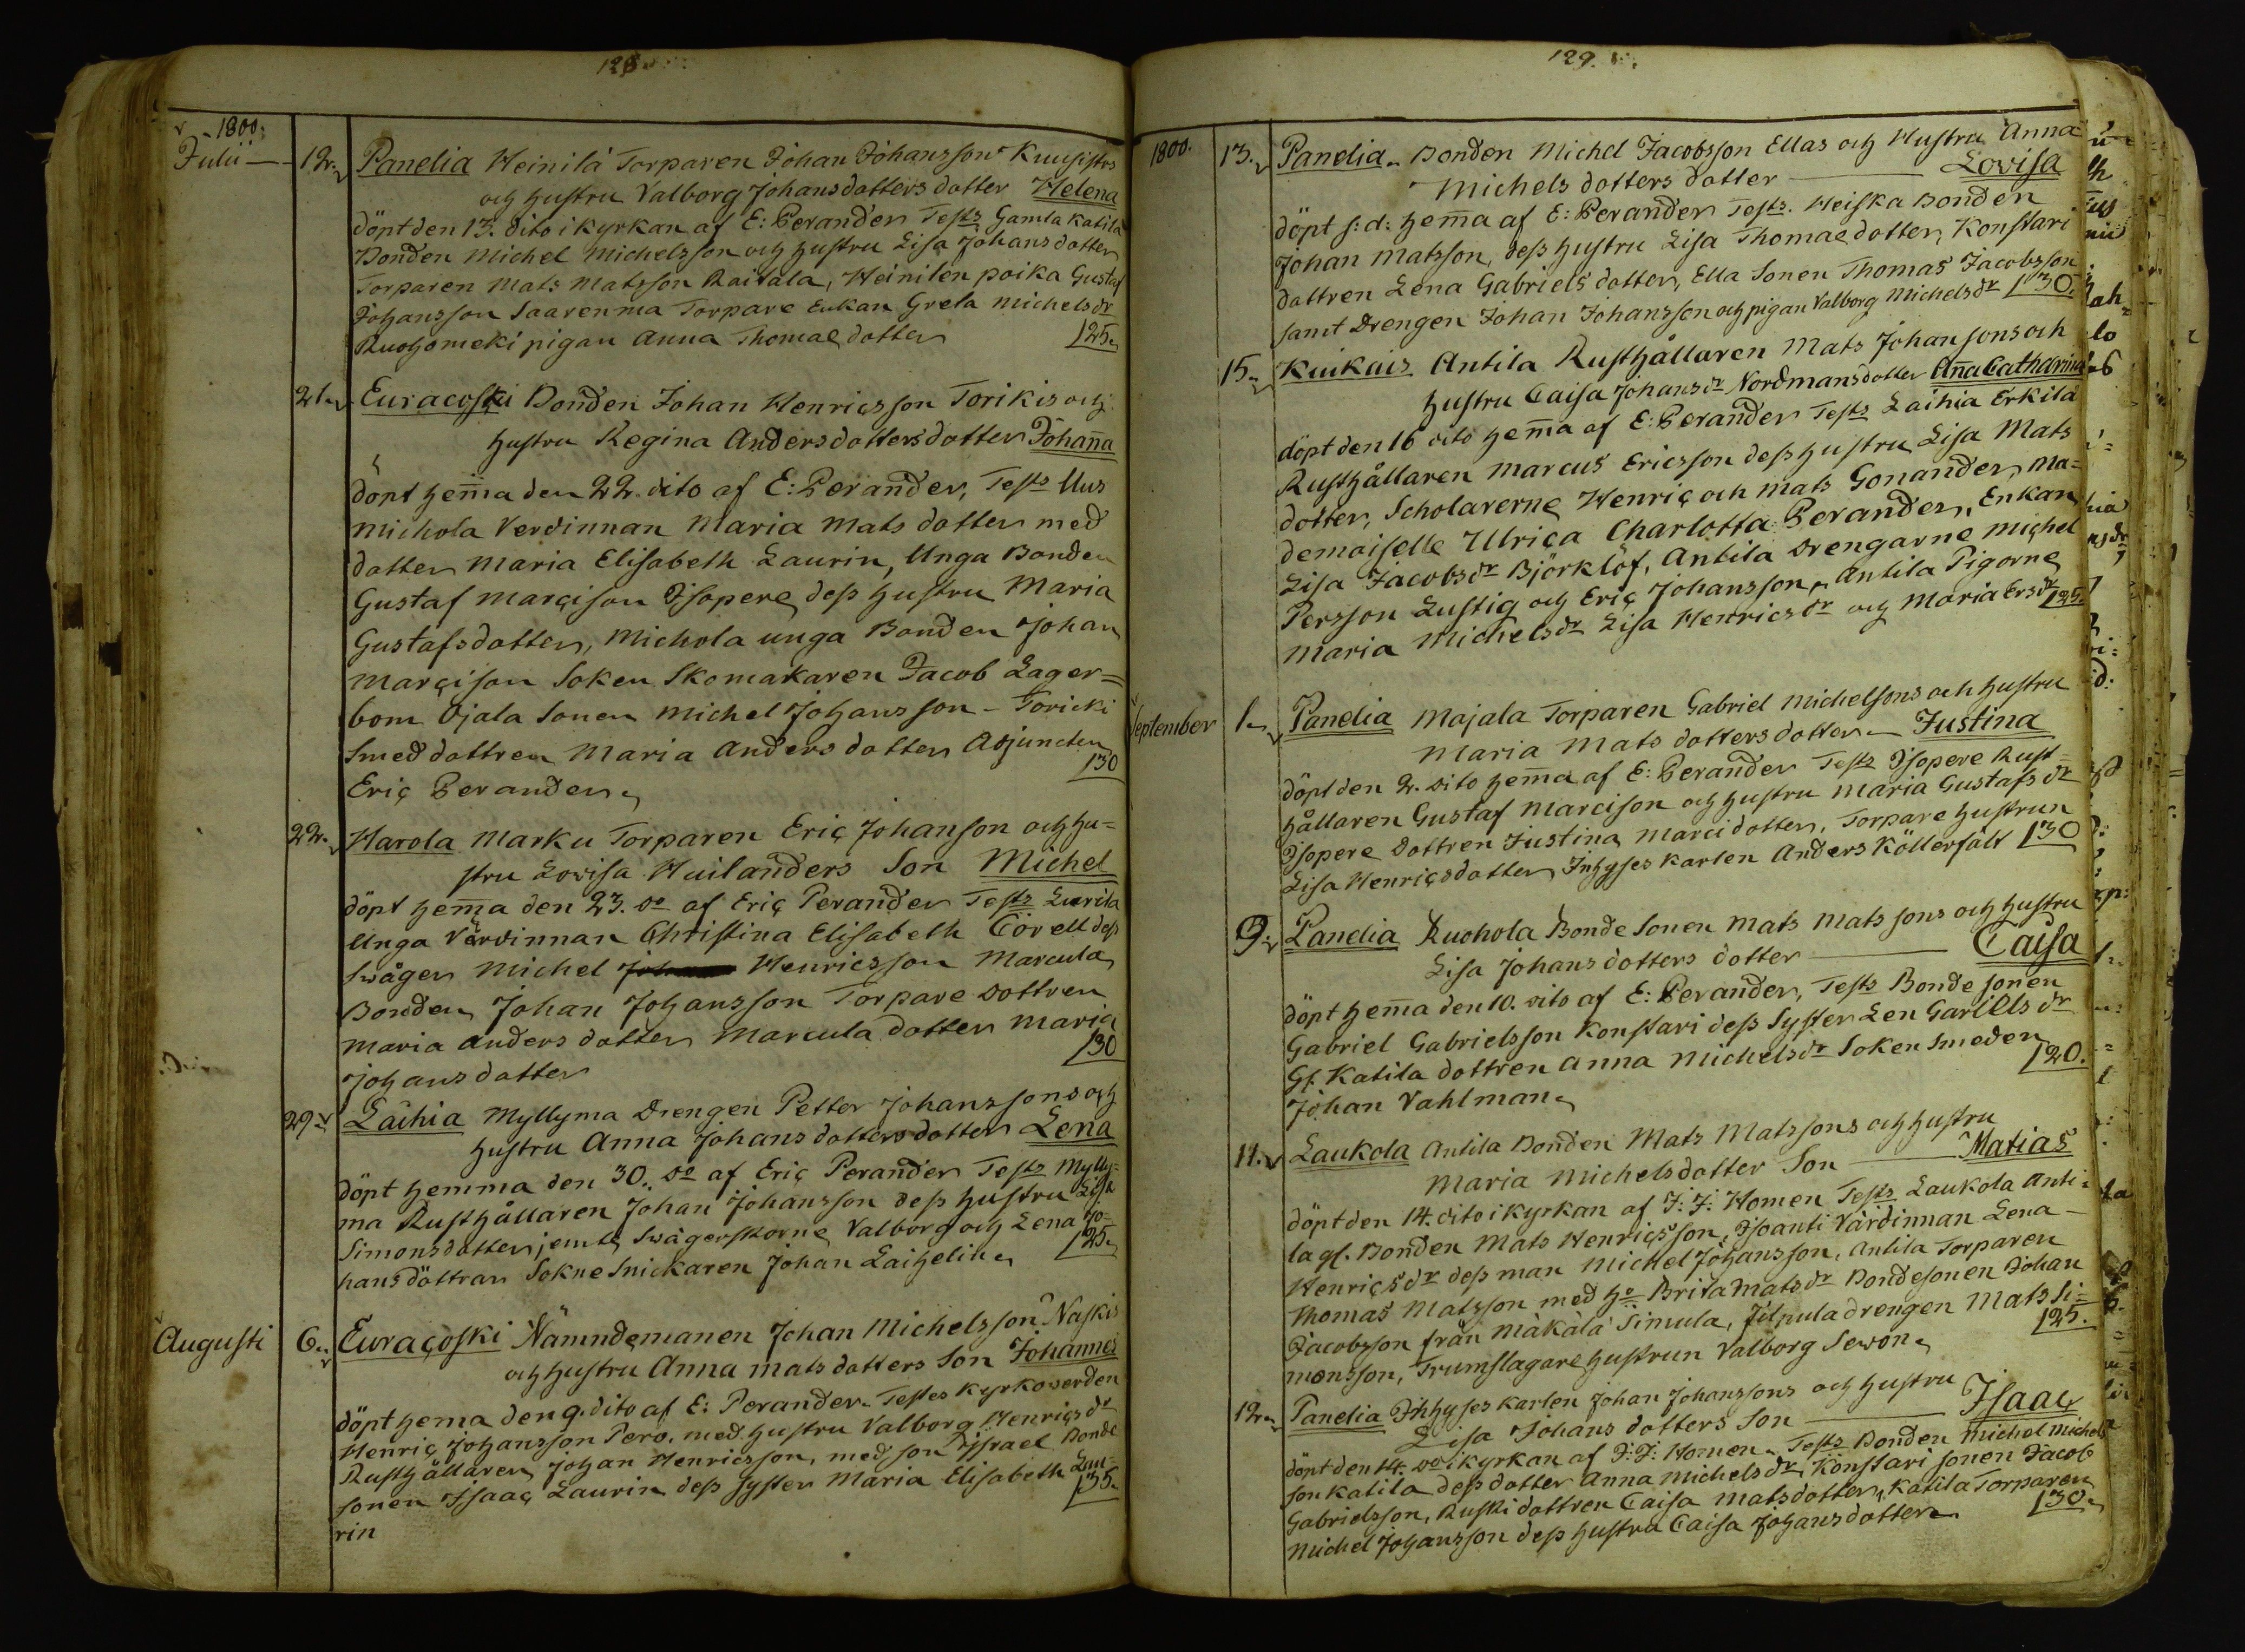 128.
1800.
Julii — 12. Panelia Heinilä Torparen Johan Johansson Kuusistos
och hustru Valborg Johansdotters dotter Helena
döpt den 13. dito i kyrkan af E: Perander Tests Gamla Katila
Bonden Michel Michelsson och hustru Lisa Johansdotter
Torparen Mats Matsson Raitala, Heinilen poika Gustaf
Johansson Saarenma Torpare Enkan Greta Michelsdr
Ruohomeki pigan Anna Thomaedotter 125.
21. Euracoski Bonden Johan Henricsson Torikis och
hustru Regina Andersdotters dotter Johaña
döpt hem̄a den 22. dito af E: Perander, Tests Uus
Michola Verdinnan Maria Matsdotter med
dotter Maria Elisabeth Laurin, Unga Bonden
Gustaf Marcison Isopere dess hustru Maria
Gustafsdotter, Michola unga Bonden Johan
Marcison Soken Skomakaren Jacob Lager=
bom Ojala Sonen Michel Johansson - Toricki
Smed dottren Maria Andersdotter Adjuncten
Eric Perander. 130
22. Harola Marku Torparen Eric Johanson och hu=
stru Lovisa Huilanders Son Michel
döpt hem̄a den 23. do af Eric Perander Tests Lurila
Unga Värdinnan Christina Elisabeth Cörell dess
Swåger Michel Henricsson Marcula
Bonden Johan Johansson Torpare dottren
Maria Andersdotter Marcula dotter Maria
Johansdotter 130
29. Laihia Myllyma Drengen Petter Johanssons och
hustru Anna Johansdotters dotter Lena
döpt hemma den 30. do af Eric Perander Tests Mylly=
ma Rusthållaren Johan Johansson dess hustru Lisa
Simonsdotter, jemte Swägerskorne Valborg och Lena Jo=
hansdöttrar Sokne Snickaren Johan Laihelin. 125.
Augusti 6. Euracoski Nämndemanen Johan Michelsson Naskis
och hustru Anna Matsdotters Son Johannes
döpt hema den 9. dito af E: Perander. Testes Kyrkoverden
Henric Johansson Pero, med hustru Valborg Henricsdr
Rusthållaren Johan Henricsson, med son Israel Bonde
sonen Isaac Laurin dess syster Maria Elisabeth Lau=
rin 135.
129.
1800. 13. Panelia. Bonden Michel Jacobsson Ellas och Hustru Anna
Michelsdotters dotter — Lovisa
döpt s: d: hem̄a af E: Perander Tests. Heiska Bonden
Johan Matsson, dess hustru Lisa Thomaedotter, Konstari
dottren Lena Gabrielsdotter, Ella Sonen Thomas Jacobsson
samt Drengen Johan Johansson och pigan Valborg Michelsdr 130.
15. Kiukais Antila Rusthållaren Mats Johansons och
hustru Caisa Johansdr Nordmansdotter Aña Catharina
döpt den 16 dito hem̄a af E: Perander Tests Laihia Erkilä
Rusthållaren Marcus Ericsson dess hustru Lisa Mats
dotter, Scholarerne Henric och Mats Gonander, Ma=
demoiselle Ulrica Charlotta Perander, Enkan
Lisa Jacobsdr Björklöf, Antila Drengarne Michel
Persson Lustig och Eric Johansson, Antila Pigorne
Maria Michelsdr Lisa Henricsdr och Maria Ersdr 125.
September 1. Panelia Majala Torparen Gabriel Michelsons och hustru
Maria Matsdotters dotter — Justina
döpt den 2. dito hem̄a af E: Perander Tests Isopere Rust=
hållaren Gustaf Marcison och hustru Maria Gustafsdr
Isopere Dottren Justina Marcidotter, Torpare hustrun
Lisa Henricsdotter Inhyses karlen Anders Köllerfält 130
9. Panelia Ruohola Bonde Sonen Mats Matssons och hustru
Lisa Johansdotters dotter — Caisa
döpt hem̄a den 10. dito af E: Perander, Tests Bonde sonen
Gabriel Gabrielsson Konstari dess Syster Len Garlelsdr
Gl. Katila dottren Anna Michelsdr Soken Smeden
Johan Vahlman. 120.
11. Laukola Antila Bonden Mats Matssons och hustru
Maria Michelsdotter Son — Matias
döpt den 14. dito i Kyrkan af J: J: Homen Tests Laukola Anti=
la gl. Bonden Mats Henricsson, Isoanti Värdinnan Lena
Henricsdr dess man Michel Johansson, Antila Torparen
Thomas Matsson med ho Brita Matsdr Bondesonen Johan
Jacobsson från Mäkälä Simula, Filpula drengen Mats Si=
monsson, Trumslagare hustrun Valborg Sewon. 125.
12. Panelia Inhyses karlen Johan Johanssons och hustru
Lisa Johansdotters Son — Isaac
döpt den 14. do i kyrkan af J: J: Homen. Tests Bonden Michel Michels
son Katila dess dotter Anna Michelsdr, Konstari sonen Jacob
Gabrielsson, Ruski dottren Caisa Matsdotter, Katila Torparen
Michel Johansson dess hustru Caisa Johansdotter. 130.